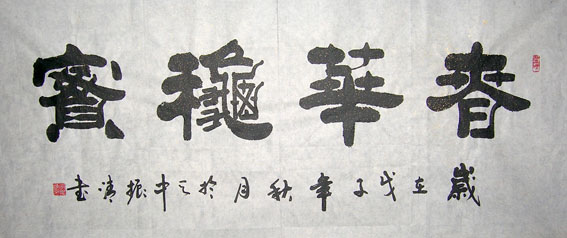 春華龝實
歲在戊子年秋月於中振清书